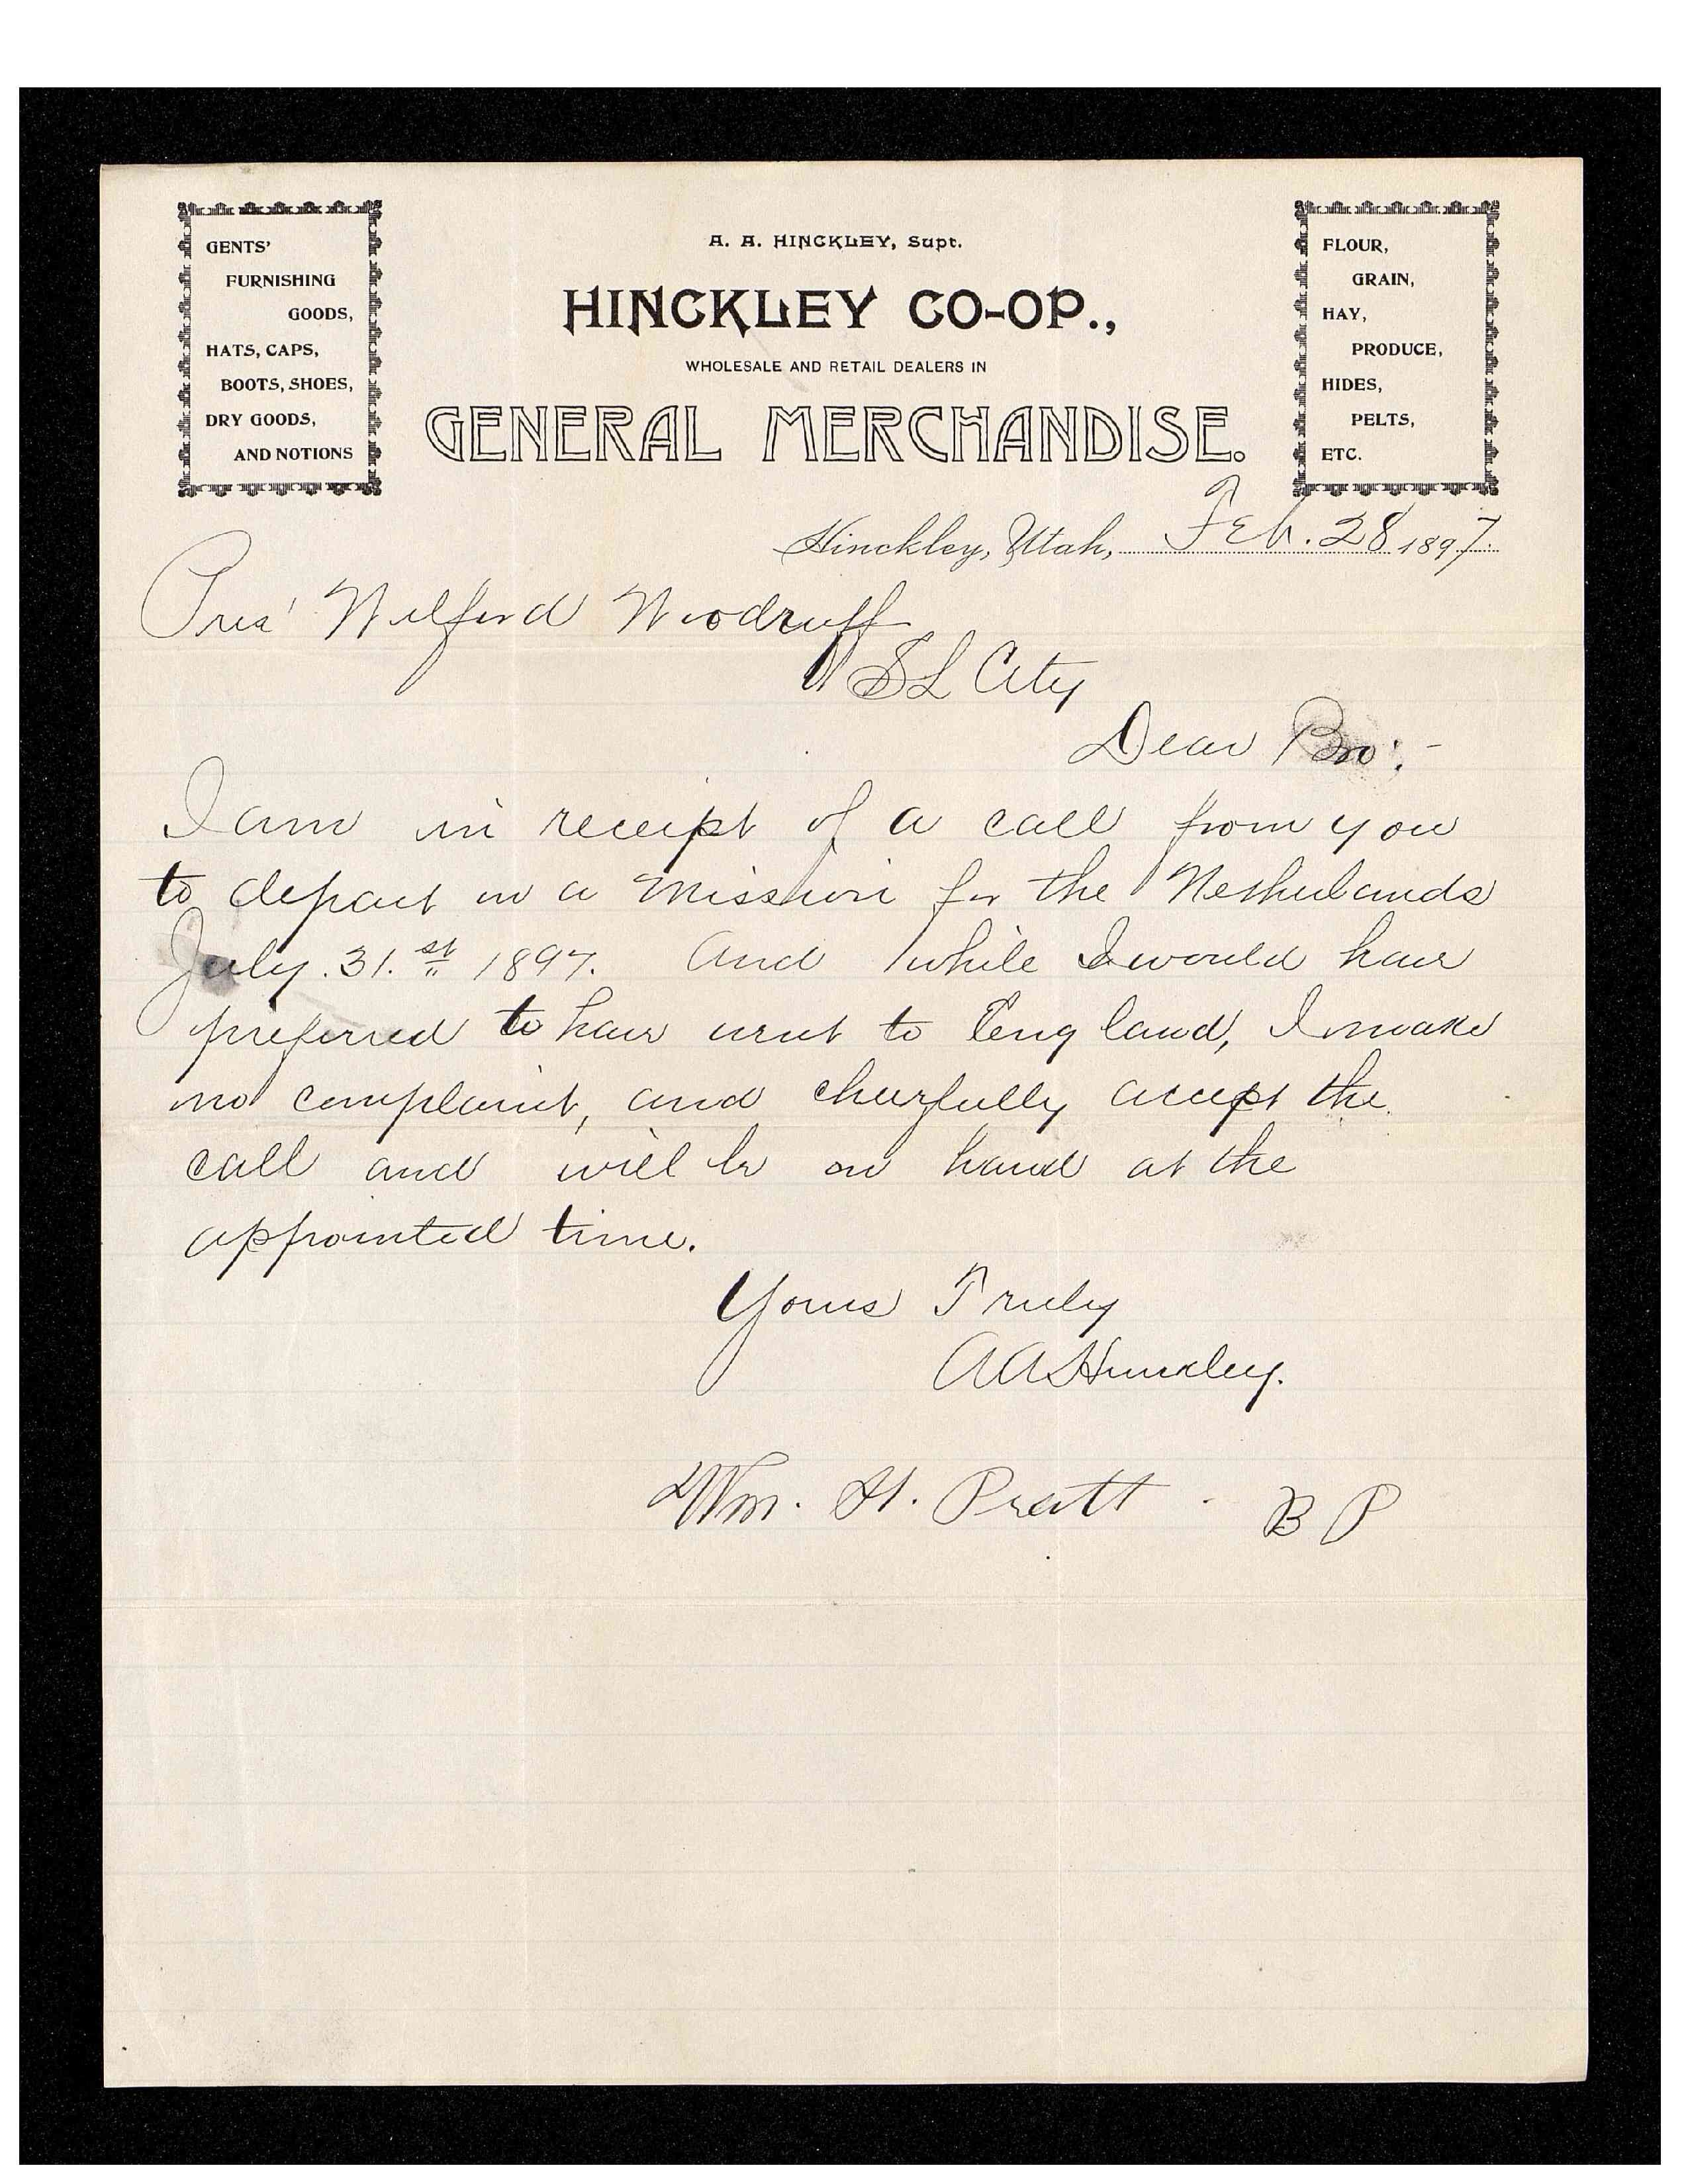 GENTS'
FURNISHING
GOODS,
HATS, CAPS,
BOOTS, SHOES,
DRY GOODS,
AND NOTIONS
A. A. HINCKLEY, Supt.
HINCKLEY CO-OP.,
WHOLESALE AND RETAIL DEALERS IN
GENERAL MERCHANDISE.
FLOUR,
GRAIN,
HAY,
PRODUCE,
HIDES,
PELTS,
ETC.
Hinckley, Utah, Feb. 28 1897.
Pres' Wilford Woodruff
S L City
Dear Bro:-
I am in receipt of a call from you
to depart on a mission for the Netherlands
July. 31.st 1897. And while I would have
preferred to have went to England, I make
no complaint, and cheerfully accept the
call and will be on hand at the
appointed time.
Yours Truly
A A Hinckley.
Wm. H. Pratt. B P